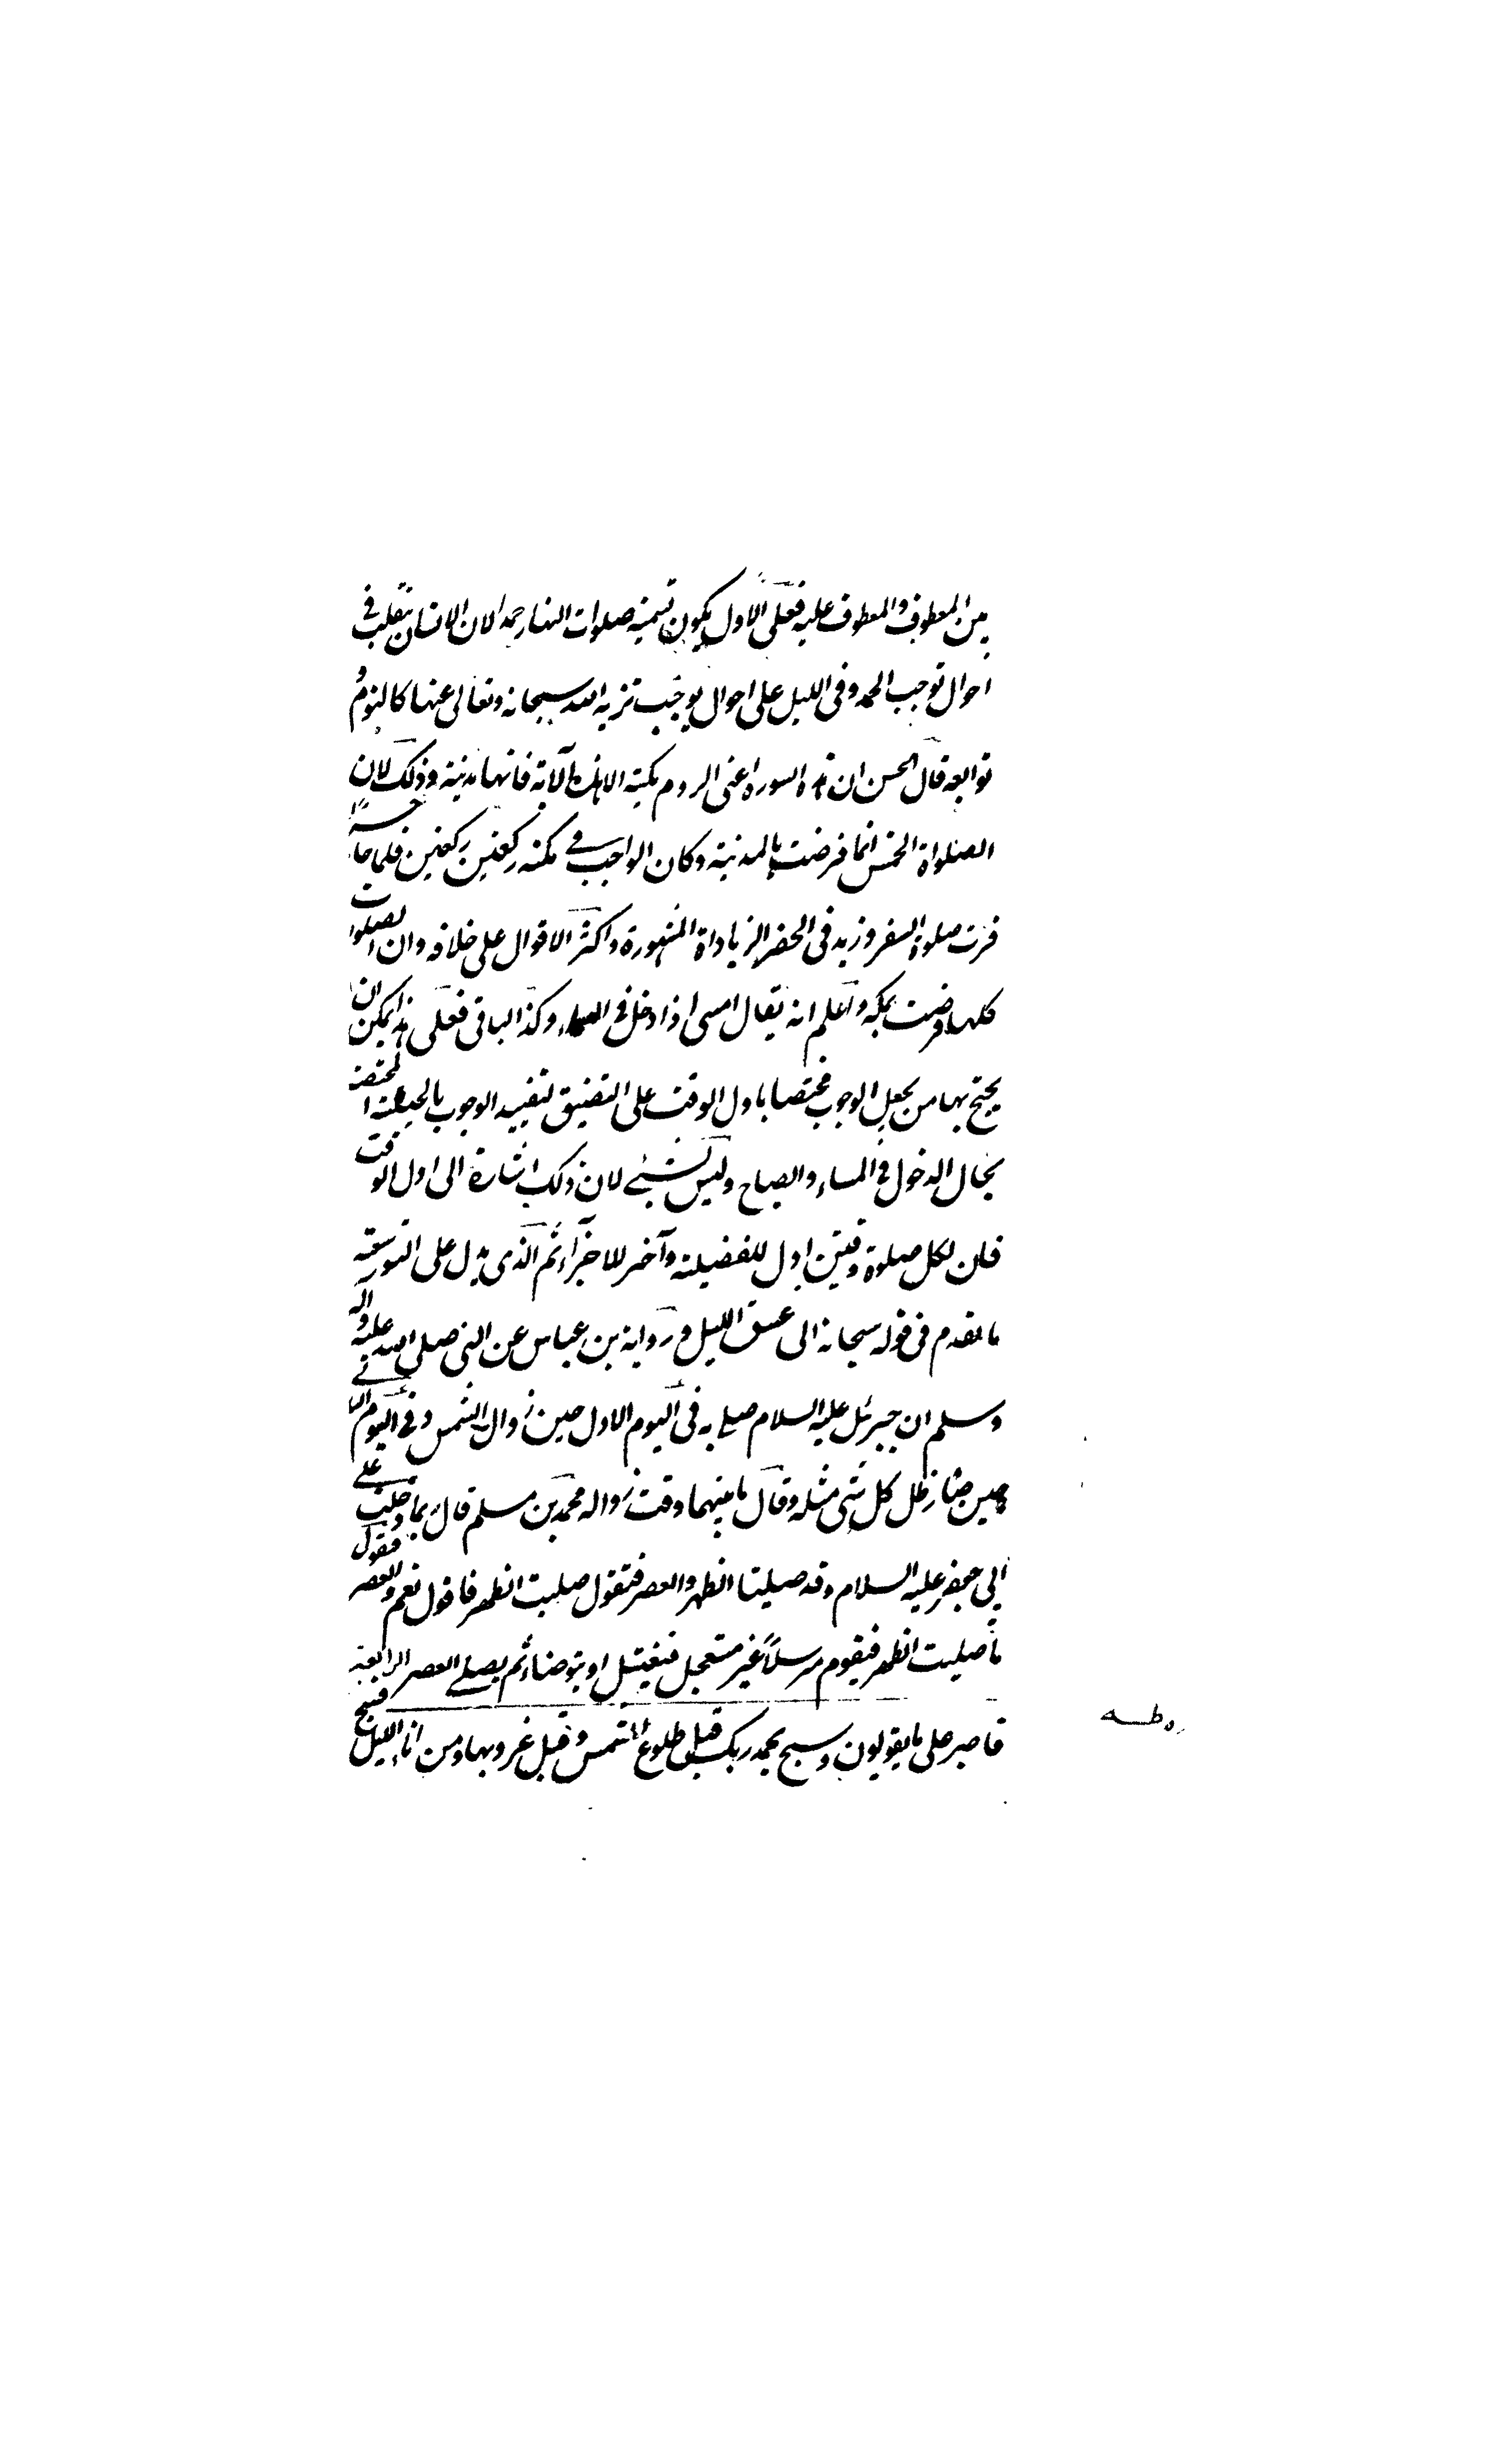 بين المعطوف والمعطوف عليه فعلى الاول يكون تسميه صلوات النهار حمدا لان الانسان يتقلب في
احوال توجب الحمد وفى الليل على احوال يوجب تنزيه الله سبحانه وتعالى عنها كالنوم و
توابعه قال الحسن ان هذه السورة اعنى الروم مكية الا هذه الآية فانها مدنية وذلك لان
الصلواة الخمس انما فرضت بالمدنية وكان الواجب في مكته ركعتين ركعتين فلما
فرت صلوة السفر وزيد فى الحضر الزياداة المشهورة واكثر الاقوال على خلافه وان الصلوات
كلها فرضت بمكه واعلم انه يقال امسى اذا دخل فى المساء وكذا الباقى فعلى هذا يمكن ان
يحتج بها من يجعل الوجوب مختصا باول الوقت على التضيق لتقييد الوجوب المختصة
بحال الدخول فى المساء والصباح وليس بشئ لان ذلك اشارة الى اول الوقت
فان لكل صلوة وقتين اول للفضيلة وآخر للاجزاء ثم الذى يدل على التوسعة
ما تقدم فى قوله سبحانه الى غسق الليل ورواية بن عباس عن النبى صلى الله عليه وآله
وسلم ان جبرئل عليه السلام صلى به فى اليوم الاول حين زوال الشمس وفى اليوم الثانى
حين صار ظل كل شى مثله وقال ما بينهما وقت زواله محمد بن مسلم قال ربما دخلت على
ابى جعفر عليه السلام وقد صليتا الظهر والعصر فتقول صليت الظهر فاقول نعم فيقول والعصر
ما صليت الظهر فيقوم مرسلاً غير مستعجل فيغتسل او يتوضاء ثم يصلى العصر الرابعة
فاصبر على ما يقولون وسبح بحمد ربك قبل طلوع الشمس وقبل غروبها ومن اناء الليل فسبح
طه